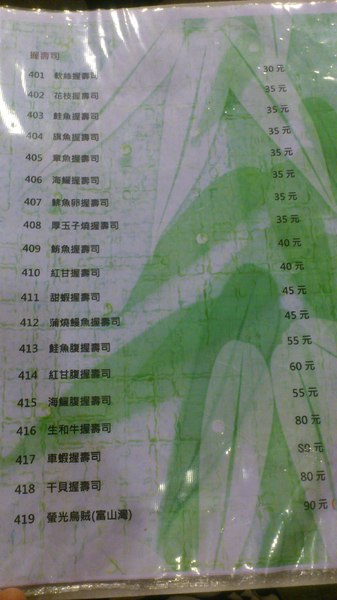 握壽司
401 軟絲握壽司 30 元
402 花枝握壽司 35 元
403 鮭魚握壽司 35 元
404 旗魚握壽司 35 元
405 章魚握壽司 35 元
406 海鱺握壽司 35 元
407 鯡魚卵握壽司 35 元
408 厚玉子燒握壽司 35 元
409 鮪魚握壽司 40 元
410 紅甘握壽司 40 元
411 甜蝦握壽司 45 元
412 蒲燒鰻魚握壽司 45 元
413 鮭魚腹握壽司 55 元
414 紅甘腹握壽司 60 元
415 海鱺腹握壽司 55 元
416 生和牛握壽司 80 元
417 車蝦握壽司 元
418 干貝握壽司 80 元
419 螢光烏賊(富山灣) 90 元